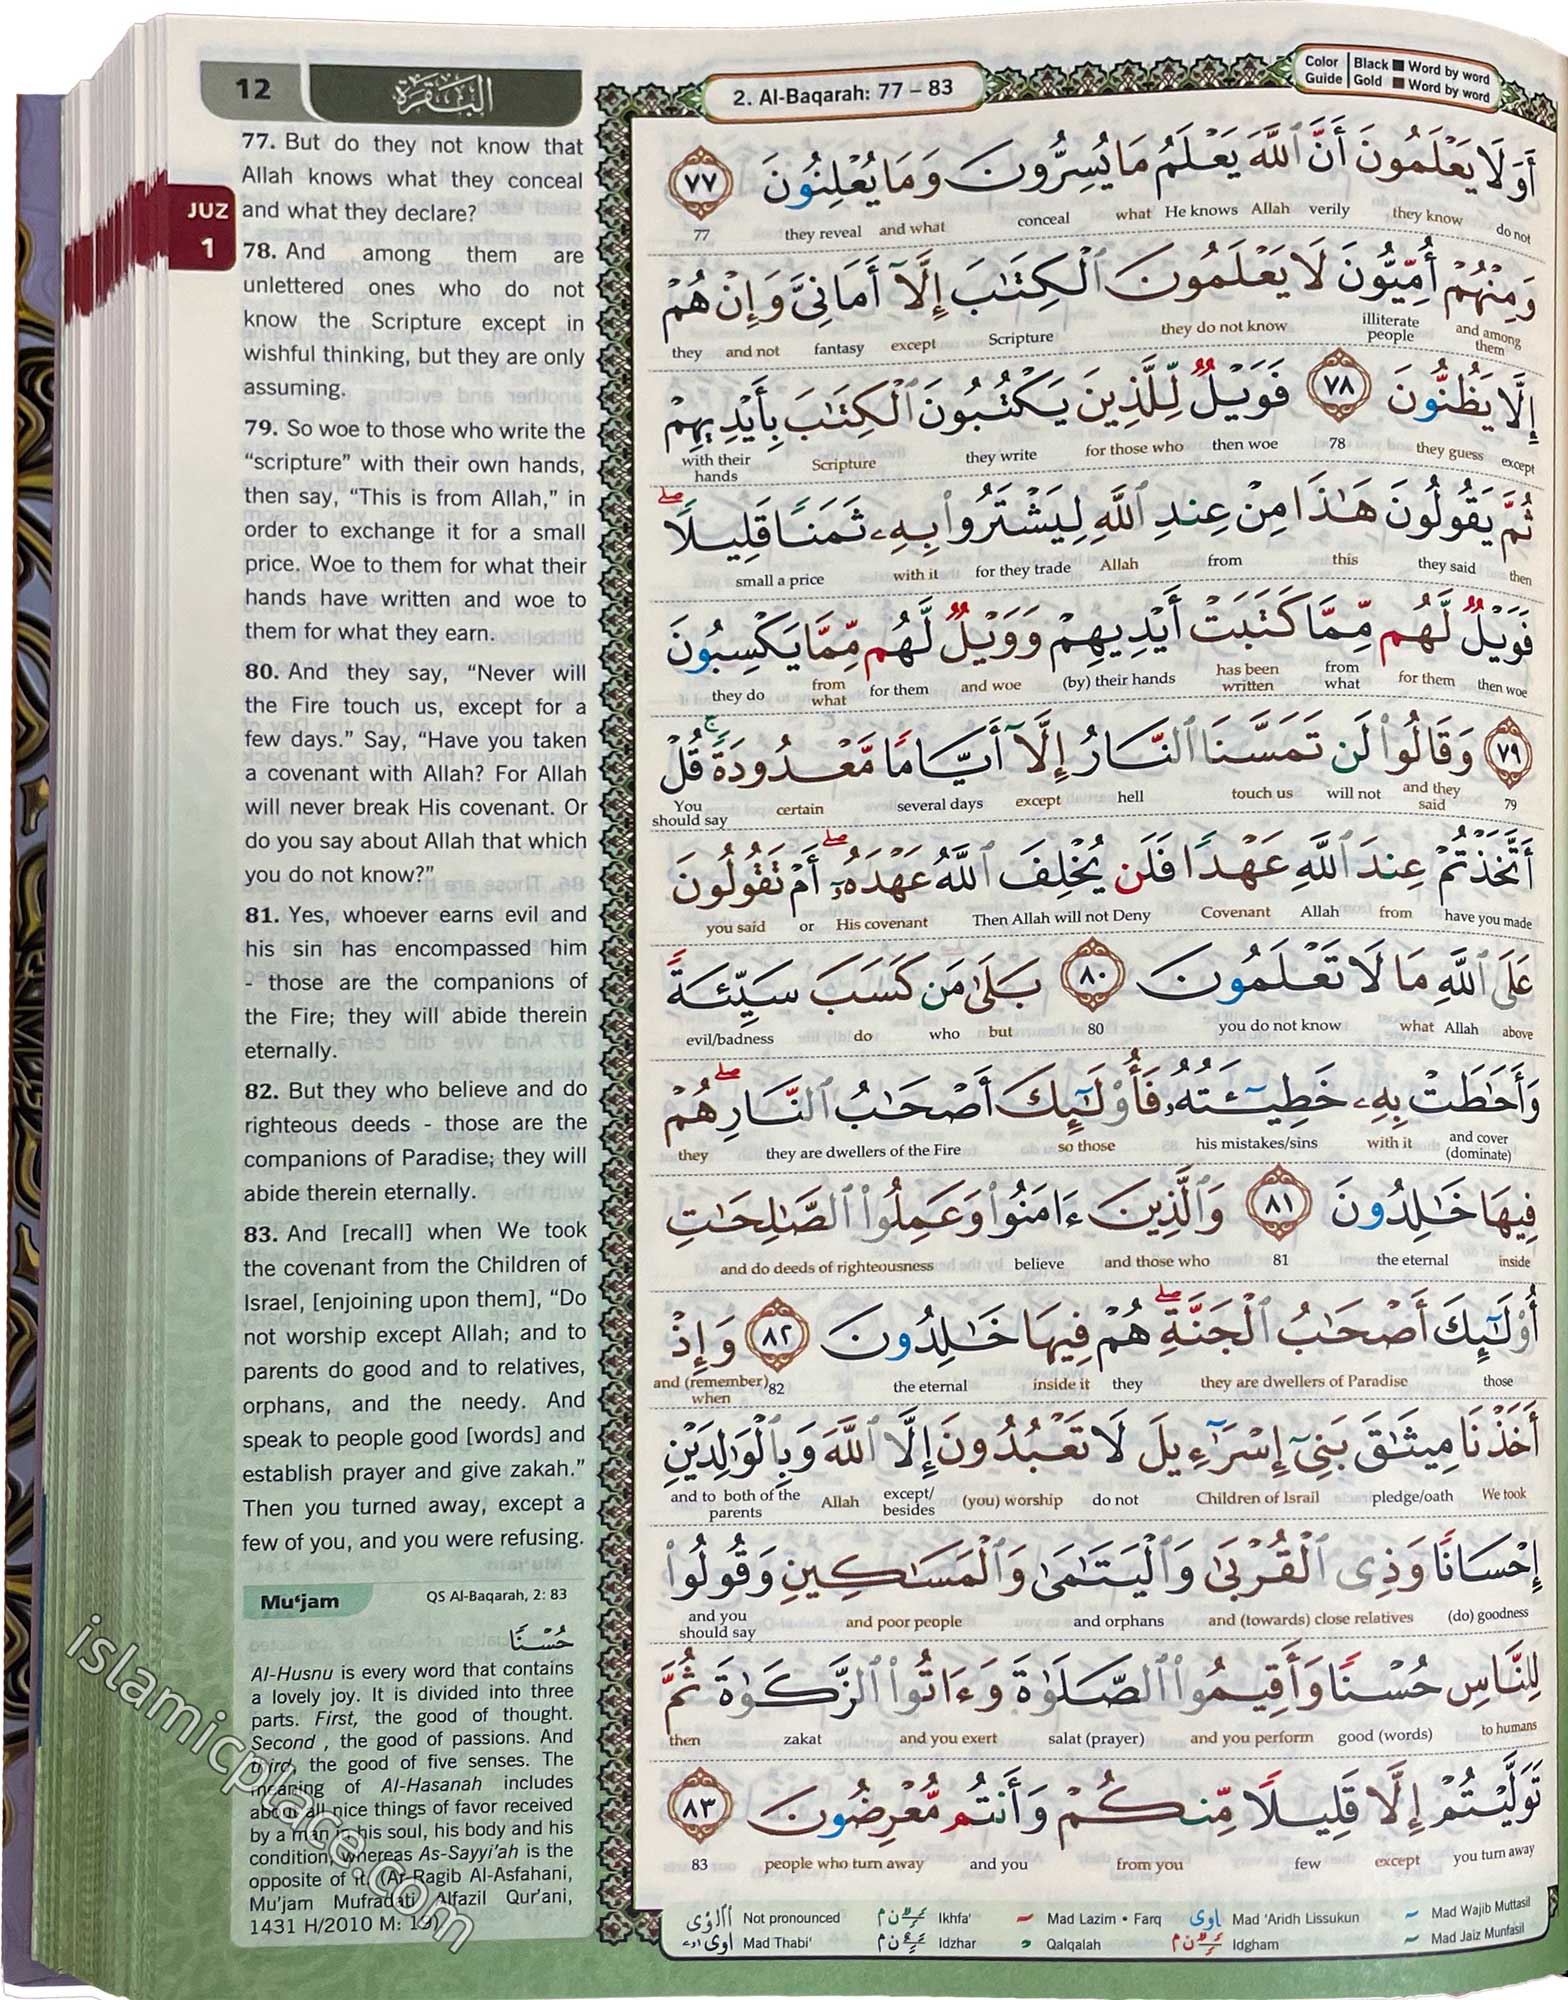 12
البقرة
JUZ
1
77. But do they not know that
Allah knows what they conceal
and what they declare?
78. And among them are
unlettered ones who do not
know the Scripture except in
wishful thinking, but they are only
assuming.
79. So woe to those who write the
“scripture” with their own hands,
then say, “This is from Allah,” in
order to exchange it for a small
price. Woe to them for what their
hands have written and woe to
them for what they earn.
80. And they say, “Never will
the Fire touch us, except for a
few days.” Say, “Have you taken
a covenant with Allah? For Allah
will never break His covenant. Or
do you say about Allah that which
you do not know?”
81. Yes, whoever earns evil and
his sin has encompassed him
- those are the companions of
the Fire; they will abide therein
eternally.
82. But they who believe and do
righteous deeds - those are the
companions of Paradise; they will
abide therein eternally.
83. And [recall] when We took
the covenant from the Children of
Israel, [enjoining upon them], “Do
not worship except Allah; and to
parents do good and to relatives,
orphans, and the needy. And
speak to people good [words] and
establish prayer and give zakah.”
Then you turned away, except a
few of you, and you were refusing.
Mu‘jam QS Al-Baqarah, 2: 83
حُسْنًا
Al-Husnu is every word that contains
a lovely joy. It is divided into three
parts. First, the good of thought.
Second , the good of passions. And
third, the good of five senses. The
meaning of Al-Hasanah includes
about all nice things of favor received
by a man in his soul, his body and his
condition, whereas As-Sayyi’ah is the
opposite of it. (Ar-Ragib Al-Asfahani,
Mu’jam Mufradati Alfazil Qur’ani,
1431 H/2010 M: 19)
islamicplace.com
2. Al-Baqarah: 77 – 83
Color Guide
Black Word by word
Gold Word by word
أَوَلَا يَعْلَمُونَ أَنَّ ٱللَّهَ يَعْلَمُ مَا يُسِرُّونَ وَمَا يُعْلِنُونَ ٧٧
do not they know verily Allah He knows what conceal and what they reveal 77
وَمِنْهُمْ أُمِّيُّونَ لَا يَعْلَمُونَ ٱلْكِتَٰبَ إِلَّآ أَمَانِىَّ وَإِنْ هُمْ
and among them illiterate people they do not know Scripture except fantasy and not they
إِلَّا يَظُنُّونَ ٧٨ فَوَيْلٌ لِّلَّذِينَ يَكْتُبُونَ ٱلْكِتَٰبَ بِأَيْدِيهِمْ
except they guess 78 then woe for those who they write Scripture with their hands
ثُمَّ يَقُولُونَ هَٰذَا مِنْ عِندِ ٱللَّهِ لِيَشْتَرُوا۟ بِهِۦ ثَمَنًا قَلِيلًا ۖ
then they said this from Allah for they trade with it small a price
فَوَيْلٌ لَّهُم مِّمَّا كَتَبَتْ أَيْدِيهِمْ وَوَيْلٌ لَّهُم مِّمَّا يَكْسِبُونَ
then woe for them from what has been written (by) their hands and woe for them from what they do
٧٩ وَقَالُوا۟ لَن تَمَسَّنَا ٱلنَّارُ إِلَّآ أَيَّامًا مَّعْدُودَةً ۚ قُلْ
79 and they said will not touch us hell except several days certain You should say
أَتَّخَذْتُمْ عِندَ ٱللَّهِ عَهْدًا فَلَن يُخْلِفَ ٱللَّهُ عَهْدَهُۥٓ ۖ أَمْ تَقُولُونَ
have you made from Allah Covenant Then Allah will not Deny His covenant or you said
عَلَى ٱللَّهِ مَا لَا تَعْلَمُونَ ٨٠ بَلَىٰ مَن كَسَبَ سَيِّئَةً
above Allah what you do not know 80 but who do evil/badness
وَأَحَٰطَتْ بِهِۦ خَطِيٓـَٔتُهُۥ فَأُو۟لَٰٓئِكَ أَصْحَٰبُ ٱلنَّارِ ۖ هُمْ
and cover (dominate) with it his mistakes/sins so those they are dwellers of the Fire they
فِيهَا خَٰلِدُونَ ٨١ وَٱلَّذِينَ ءَامَنُوا۟ وَعَمِلُوا۟ ٱلصَّٰلِحَٰتِ
inside the eternal 81 and those who believe and do deeds of righteousness
أُو۟لَٰٓئِكَ أَصْحَٰبُ ٱلْجَنَّةِ ۖ هُمْ فِيهَا خَٰلِدُونَ ٨٢ وَإِذْ
those they are dwellers of Paradise they inside it the eternal 82 and (remember) when
أَخَذْنَا مِيثَٰقَ بَنِىٓ إِسْرَٰٓءِيلَ لَا تَعْبُدُونَ إِلَّا ٱللَّهَ وَبِٱلْوَٰلِدَيْنِ
We took pledge/oath Children of Israil do not (you) worship except/ besides Allah and to both of the parents
إِحْسَانًا وَذِى ٱلْقُرْبَىٰ وَٱلْيَتَٰمَىٰ وَٱلْمَسَٰكِينِ وَقُولُوا۟
(do) goodness and (towards) close relatives and orphans and poor people and you should say
لِلنَّاسِ حُسْنًا وَأَقِيمُوا۟ ٱلصَّلَوٰةَ وَءَاتُوا۟ ٱلزَّكَوٰةَ ثُمَّ
to humans good (words) and you perform salat (prayer) and you exert zakat then
تَوَلَّيْتُمْ إِلَّا قَلِيلًا مِّنكُمْ وَأَنتُم مُّعْرِضُونَ ٨٣
you turn away except few from you and you people who turn away 83
Not pronounced Ikhfa' Mad Lazim • Farq Mad 'Aridh Lissukun Mad Wajib Muttasil
Mad Thabi' Idzhar Qalqalah Idgham Mad Jaiz Munfasil